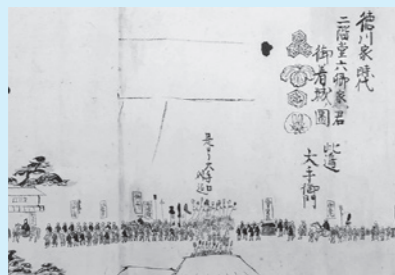 徳川家時代
二階堂六郷家 君
御着城圖
此邉
大手御門
是ヨリ大手口